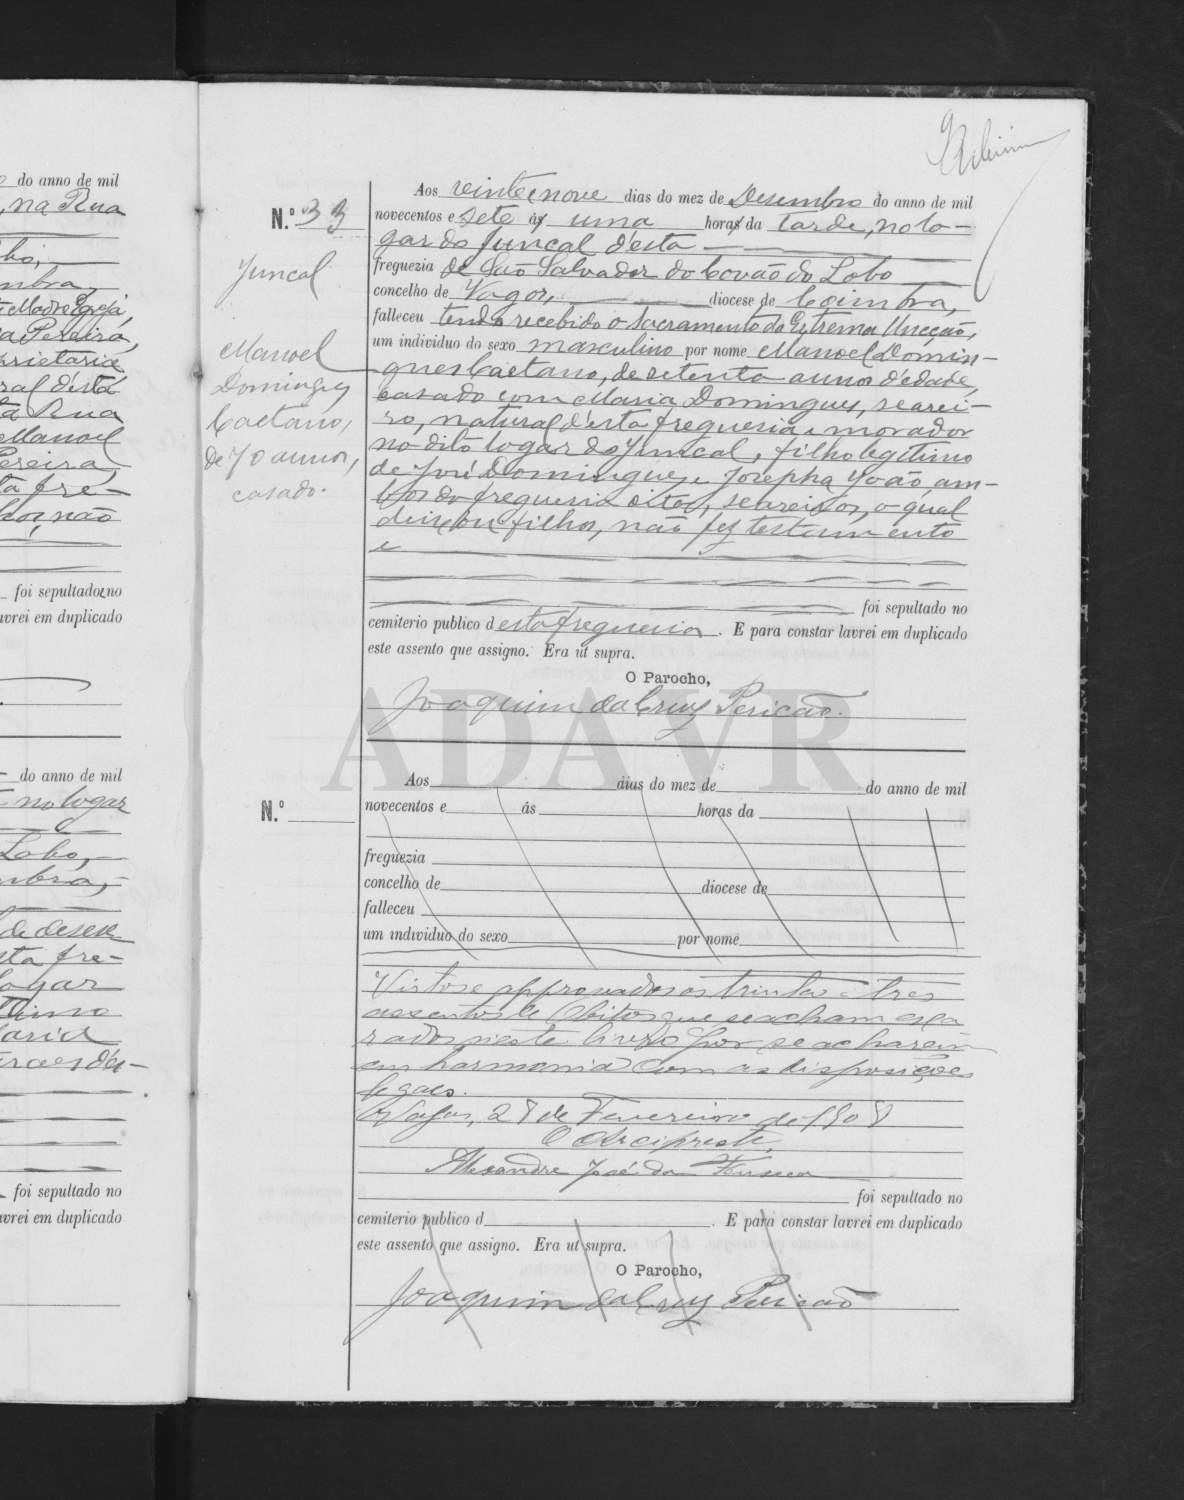 do anno de mil
, na Rua
bo,
mbra,
Madre Egreja,
a Pereira,
prietaria
ral d'esta
ta Rua
Manoel
Pereira,
ta fre-
não
foi sepultado no
avrei em duplicado
do anno de mil
no logar
Lobo,
mbra,
de
sta fre-
logar
timo
Maria
foi sepultado no
avrei em duplicado
N.º 33
Juncal
Manoel
Domingues
Caetano,
de 70 annos,
casado.
Aos vinte e nove dias do mez de Desembro do anno de mil
novecentos e sete ás uma horas da tarde, no lo-
gar do Juncal d'esta
freguezia de São Salvador do Covão do Lobo
concelho de Vagos, diocese de Coimbra,
falleceu tendo recebido o Sacramento da Estrema Uncção,
um individuo do sexo masculino por nome Manoel Domin-
gues Caetano, de setenta annos d'edade,
casado com Maria Domingues, searei-
ro, natural d'esta freguesia e morador
no dito logar do Juncal, filho legitimo
de José Domingues e Josepha João, am-
bos da freguesia dita, seareiros, o qual
deixou filhos, não fez testamento
e
foi sepultado no
cemiterio publico d esta freguesia. E para constar lavrei em duplicado
este assento que assigno. Era ut supra.
O Parocho,
Joaquim da Cruz Pericão.
ADAVR
N.º
Aos dias do mez de do anno de mil
novecentos e ás horas da
freguezia
concelho de diocese de
falleceu
um individuo do sexo por nome
Vistos e approvados os trinta e tres
assentos de Obitos que se acham exa
rados n'este livro por se acharem
em harmonia com as disposições
legaes.
Vagos, 28 de Fevereiro de 1908
O Arcipreste,
Alexandre José da Fonseca
foi sepultado no
cemiterio publico d . E para constar lavrei em duplicado
este assento que assigno. Era ut supra.
O Parocho,
Joaquim da Cruz Pericão